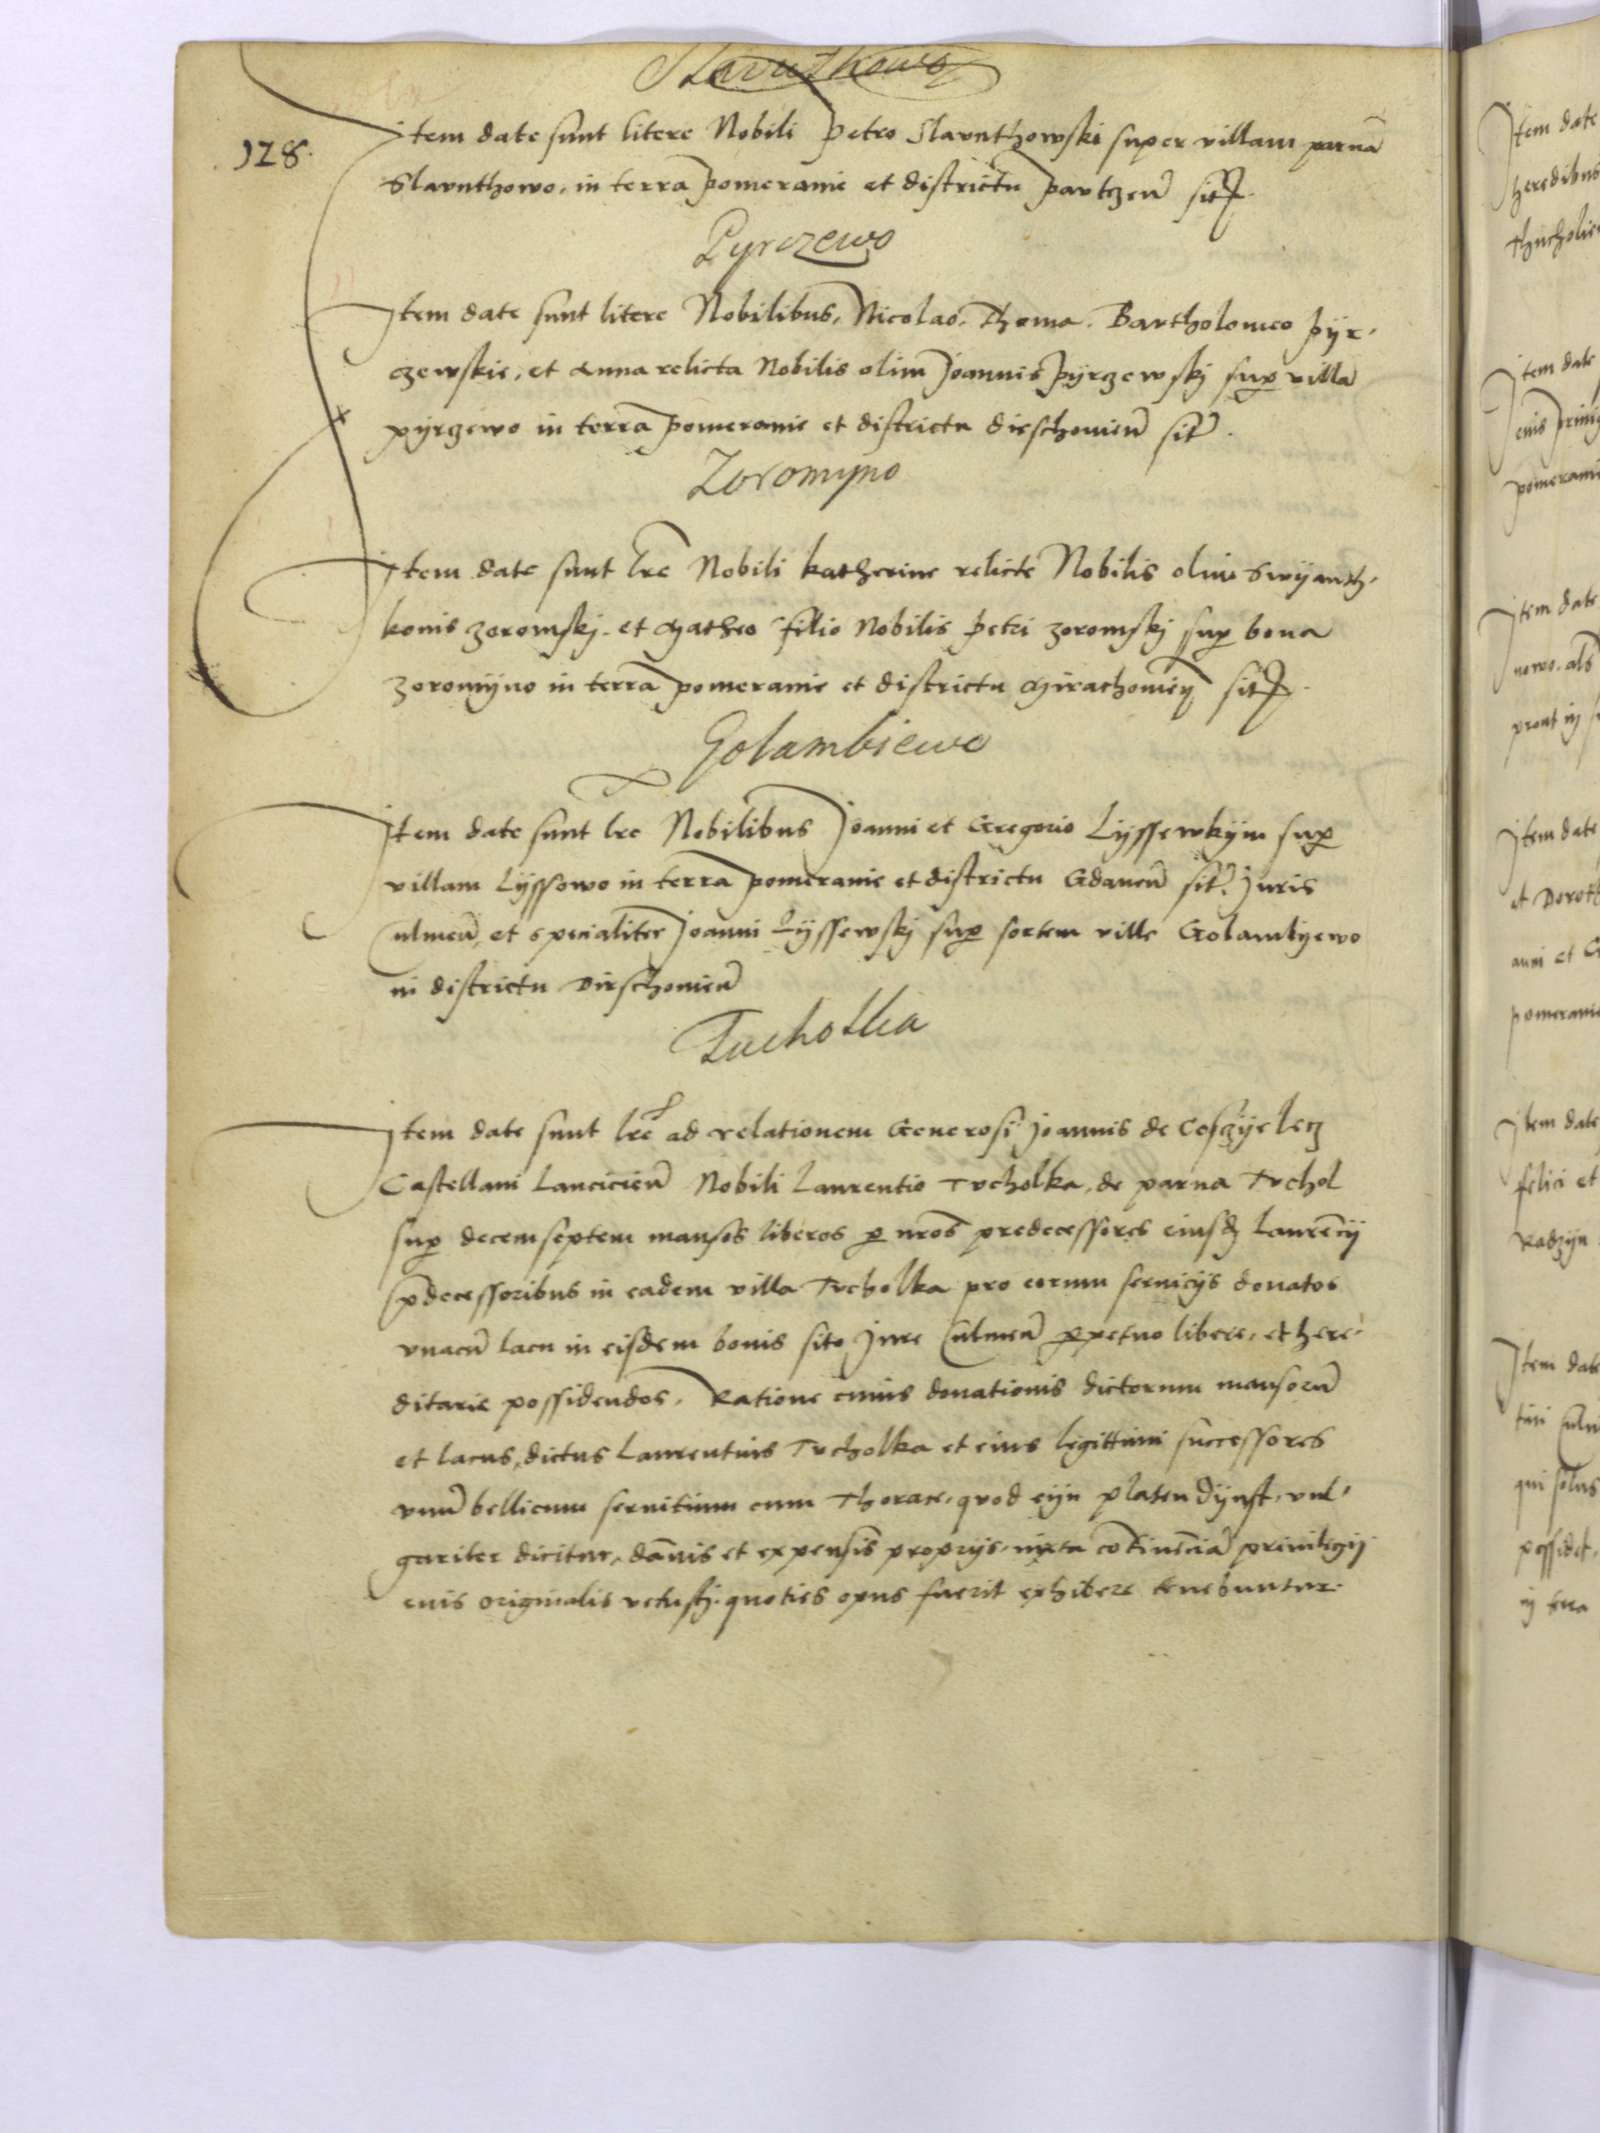 Slavutkowo
128.
Item date sunt litere Nobili Petro Slavuthowski super villam paruā
Slavuthowo, in terra pomeranie et districtu pautzeñ sit̃.
Pyrczewo
Item date sunt litere Nobilibus, Nicolao, Thoma, Bartholomeo pÿr,
czewskie, et Anna relicta Nobilis olim Joannis Pÿrczewskj sup villā
pÿrczewo in terra pomeranie et districtu dirschouieñ sit̃.
Zoromyno
Item date sunt lre Nobili katherine relicte Nobilis olim Swÿanth,
konis zoromskj, et Matheo filio Nobilis petri zoromskj sup bona
zoromÿno in terra pomeranie et districtu Mirachouieñ sit̃.
Golambiewo
Item date sunt lre Nobilibus Joanni et Gregorio Lÿssewkÿm sup
villam Lÿssowo in terra pomeranie et districtu Gdaneñ sit̃, Juris
Culmeñ, et specialiter Joanni Lÿssewskj sup sortem ville Golambyewo
in districtu Dirschouieñ
Tuchollia
Item date sunt lre ad relationem Generosi Joannis de Coszÿeletz
Castellani Lancicieñ Nobili Laurentio Tvcholka, de parua Tvchol
sup decemseptem mansos liberos p nros predecessores eiusd Laurēcij
pdecessoribus in eadem villa Tvcholka pro eorum seruicijs donatos
vnacū lacu in eisdem bonis sito Jure Culmeñ ppetuo libere, et here,
ditarie possidendos, Ratione cuius donationis dictorum mansorū
et lacus, dictus Laurentius Tvcholka et eius legittimi successores
vnū bellicum seruitium cum Thorace, quod eÿn platen dÿnst, vul,
gariter dicitur, dānis et expensis proprijs, iuxta cōtinēciā priuilegij
euis originalis vetustj, quoties opus fuerit exhibere tenebuntur.